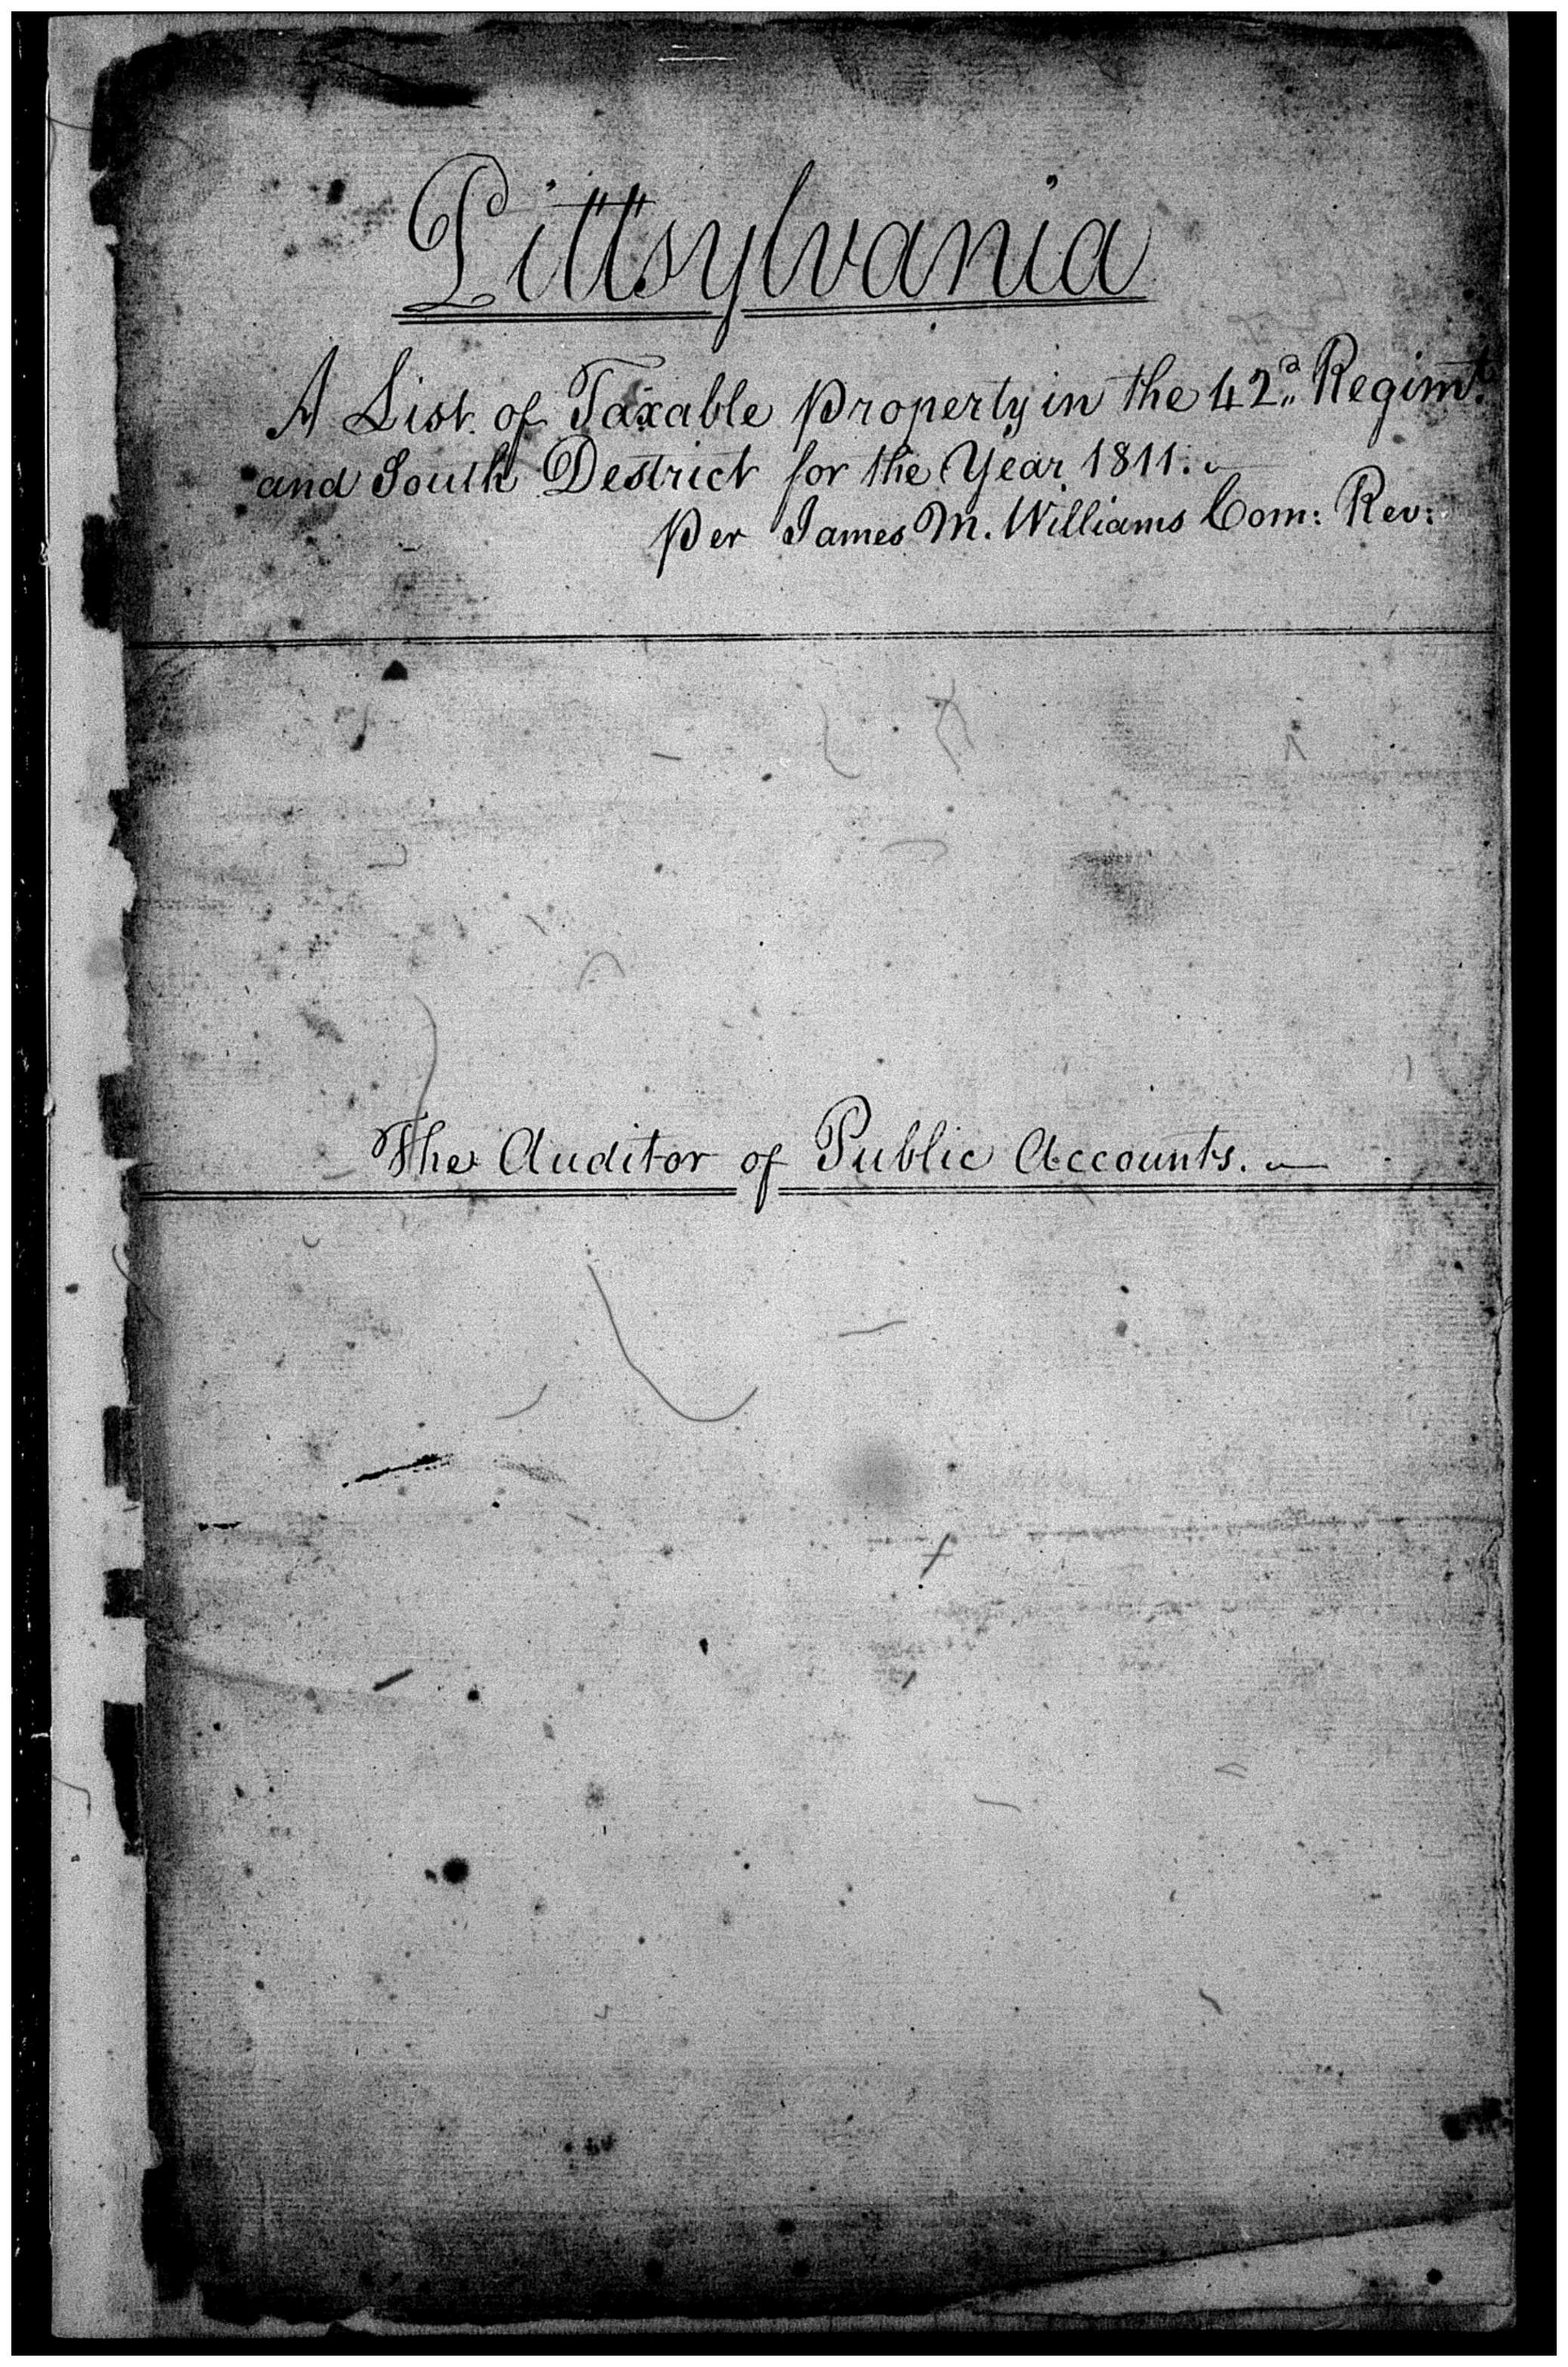 Pittsylvania
A List of Taxable Property in the 42d Regimt.
and South Destrict for the Year 1811.
Per James M. Williams Com: Rev:
The Auditor of Public Accounts.